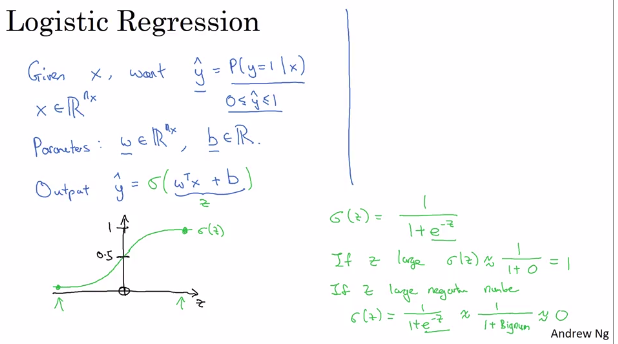 Logistic Regression
Given x, want ŷ = P(y=1|x)
x ∈ ℝⁿˣ
0 ≤ ŷ ≤ 1
Parameters: w ∈ ℝⁿˣ, b ∈ ℝ.
Output ŷ = σ(wᵀx + b)
z
1
σ(z)
0.5
z
σ(z) = 1/(1+e⁻ᶻ)
If z large σ(z) ≈ 1/(1+0) = 1
If z large negative number
σ(z) = 1/(1+e⁻ᶻ) ≈ 1/(1+Bignum) ≈ 0
Andrew Ng